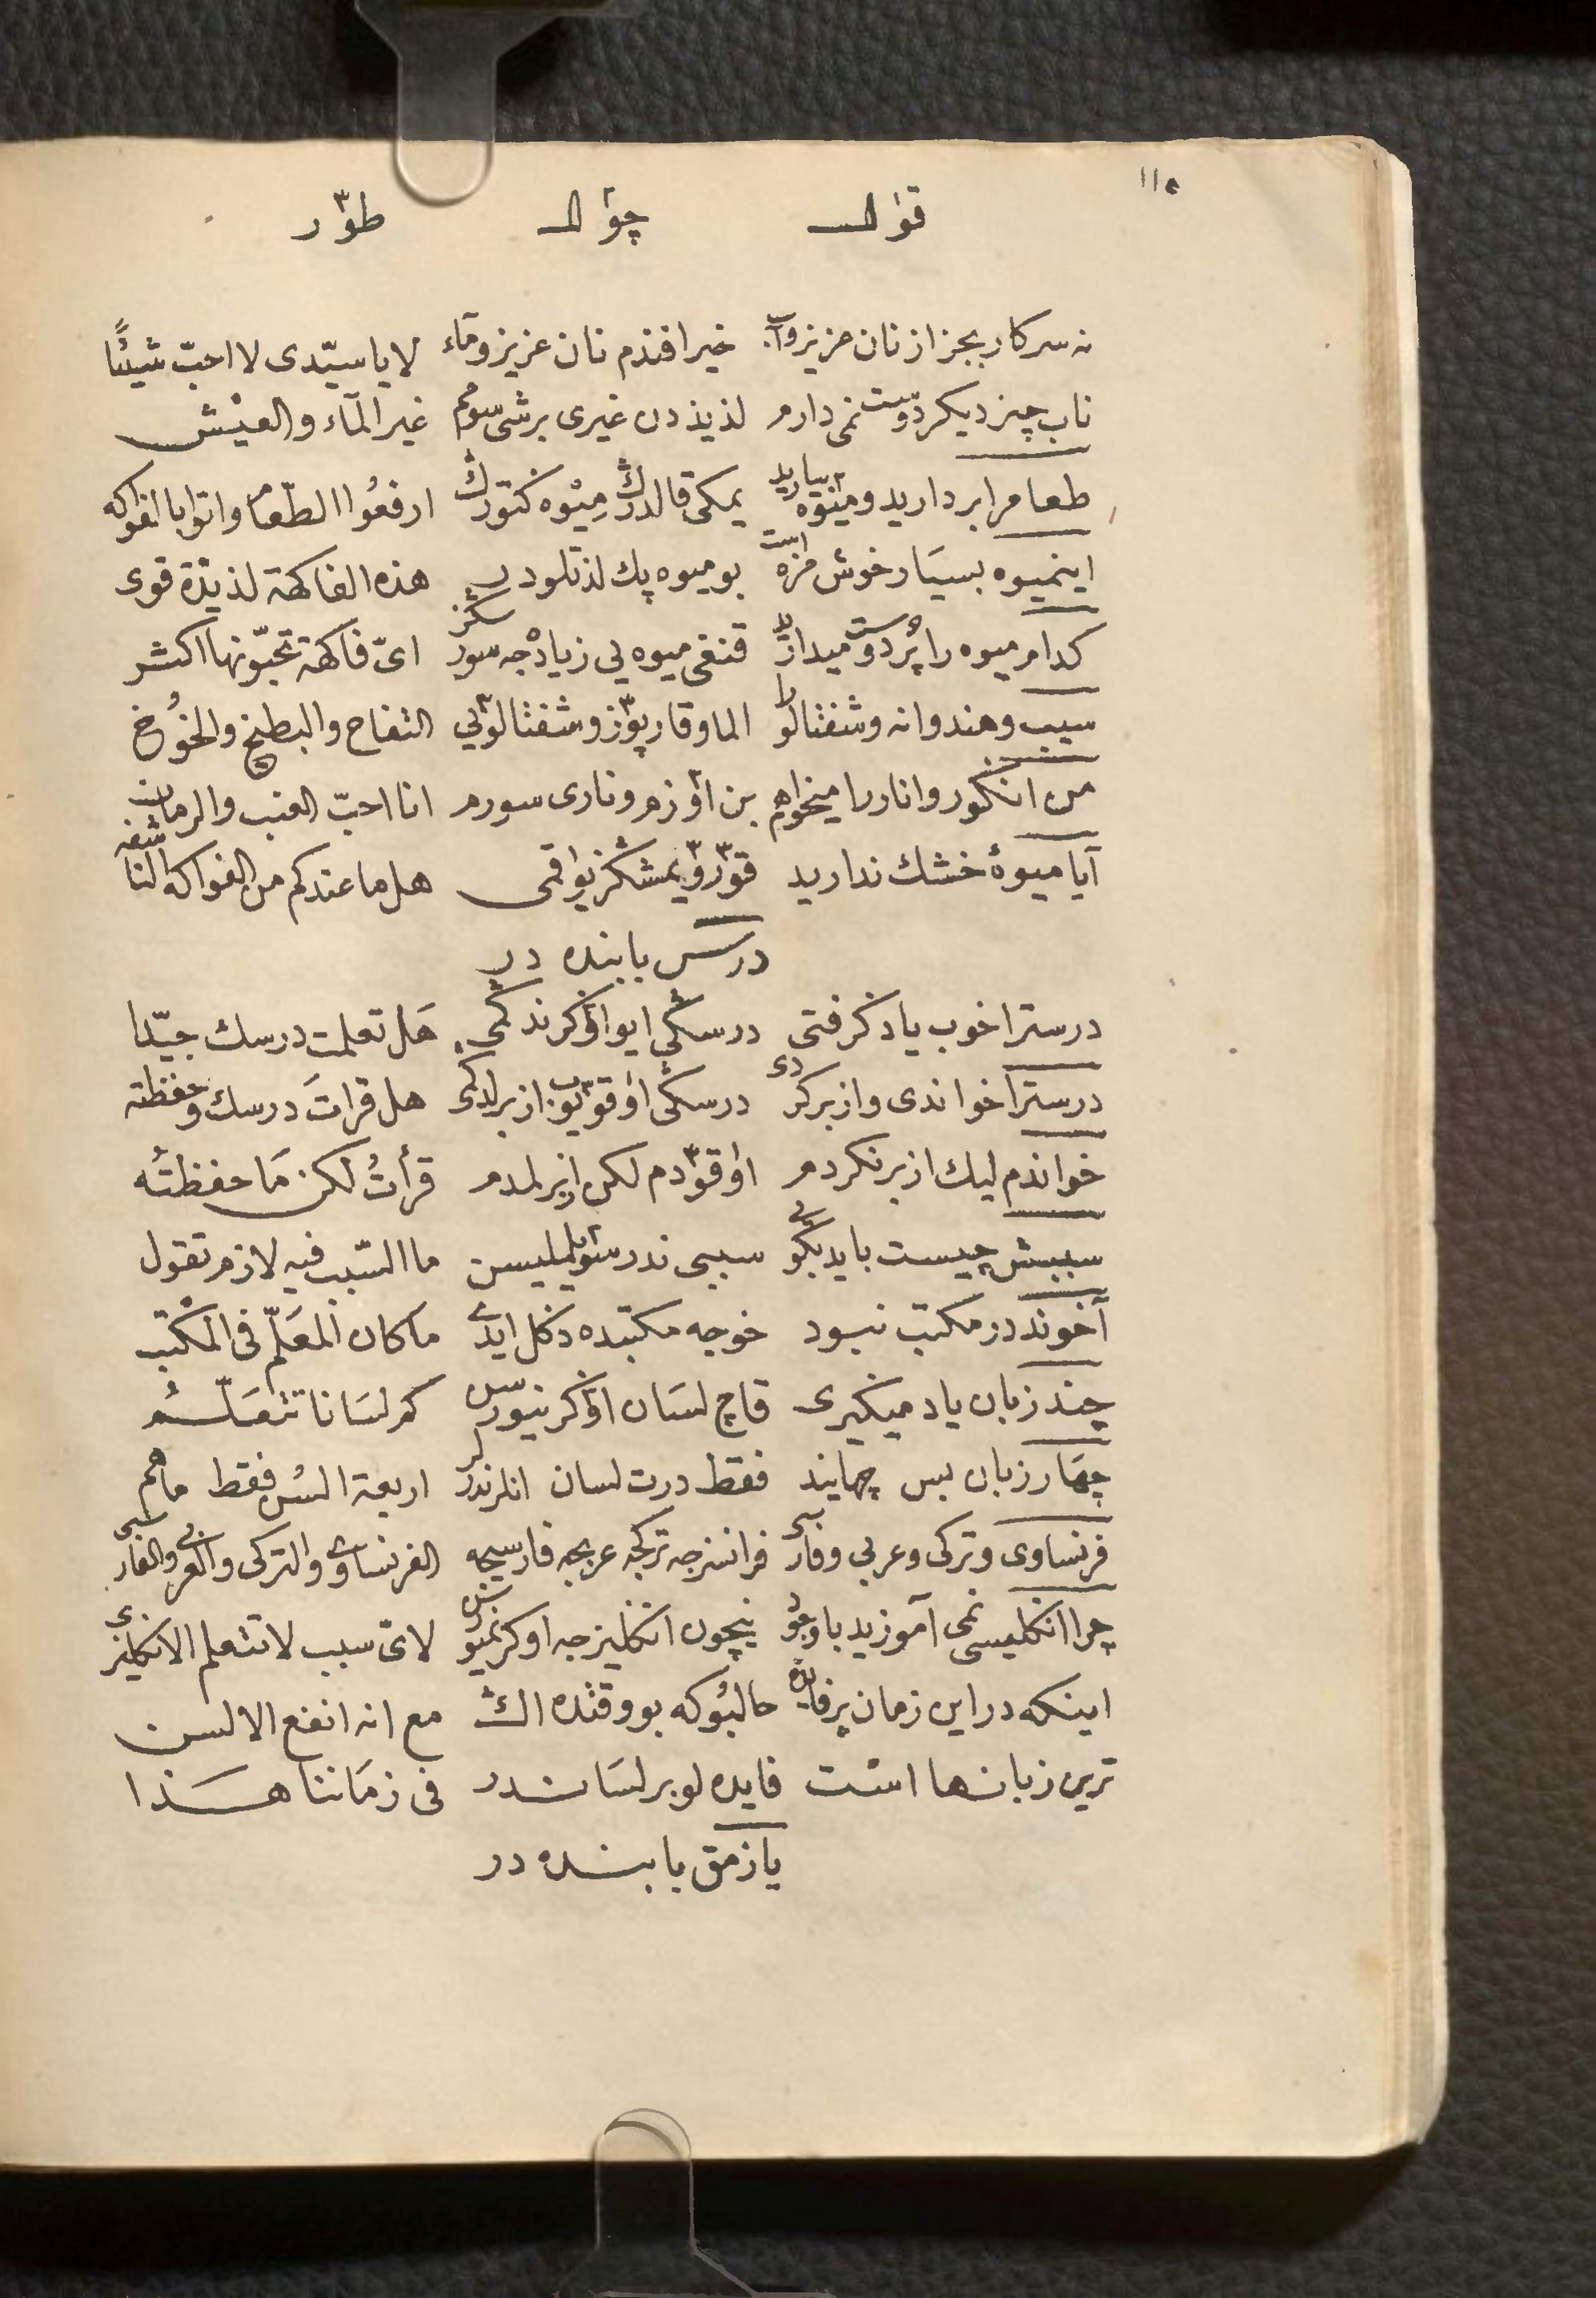 ١١٥
قوٰل چوٴل طوّر
نه سركار بجز از نان عزيز وآب خير افندم نان عزيز وماء لا يا سيّدى لا احبّ شيئًا
ناب چيز ديكر دوست نمى دارم لذيذدن غيرى برشى سومم غير المآء والعيْش
طعام را برداريد وميوه بياريد يمكى قالدرڭ مِيْوه كتورڭ ارفعُوا الطّعام واتوا بالفواكه
اينميوه بسيَار خوش مزه است بو ميوه پك لذتلودر هذه الفاكهة لذيذة قوى
كدام ميوه را پُر دوست ميداريد قنغى ميوه يى زيادْجه سورسكز اىّ فاكهة تحبّونها اكثر
سيب وهندوانه وشفتالو را الما وقارپوّز وشفتالوٴيى التفاح والبطيخ والخُوخ
من انكور وانار را ميخواهم بن اوٴزم ونارى سورم انا احبّ العنب والرمان
آيا ميوهٔ خشك نداريد قوّروّ يمشكز يوٰقمى هل ما عندكم من الفواكه الناشفه
درس بابنده در
درسترا خوب ياد كرفتى درسڭى ايو اوٴكرندكمى هَل تعلمت درسك جيّدا
درسترا خواندى واز بر كردى درسڭى اوٰقوّيوب ازبرلدكمى هل قراتَ درسك وحفظته
خواندم ليك از بر نكردم اوٰقوّدم لكن ازبرلمدم قرأتُ لكن مَا حفظتُه
سببش چيست بايد بكويى سببى ندر سوٴيلمليسن ما السّبب فيه لازم تقول
آخوند در مكتب نبود خوجه مكتبده دكل ايدى ما كان المعَلّم فى المكْتب
چند زبان ياد ميكيرى قاچ لسَان اوٴكرنيورسن كم لسَانا تتعَلّم
چهَار زبان بس چهايند فقط درت لسان انلرندر اربعة السُن فقط ما هم
فرنساوى وتركى وعربى وفارسى فرانسزجه تركجه عربجه فارسيجه الفرنساوى والتركى والعربى والفارسى
چرا انكليسى نمى آموزيد با وجود نيچون انكليزجه اوكرنميورسن لاىّ سبب لا تتعلم الانكليزى
اينكه در اين زمان پر فايده حالبُوكه بو وقتده اڭ مع انه انفع الالسن
ترين زبانها است فايده لو بر لسَاندر فى زمَاننا هَذا
يازمق بابنده در